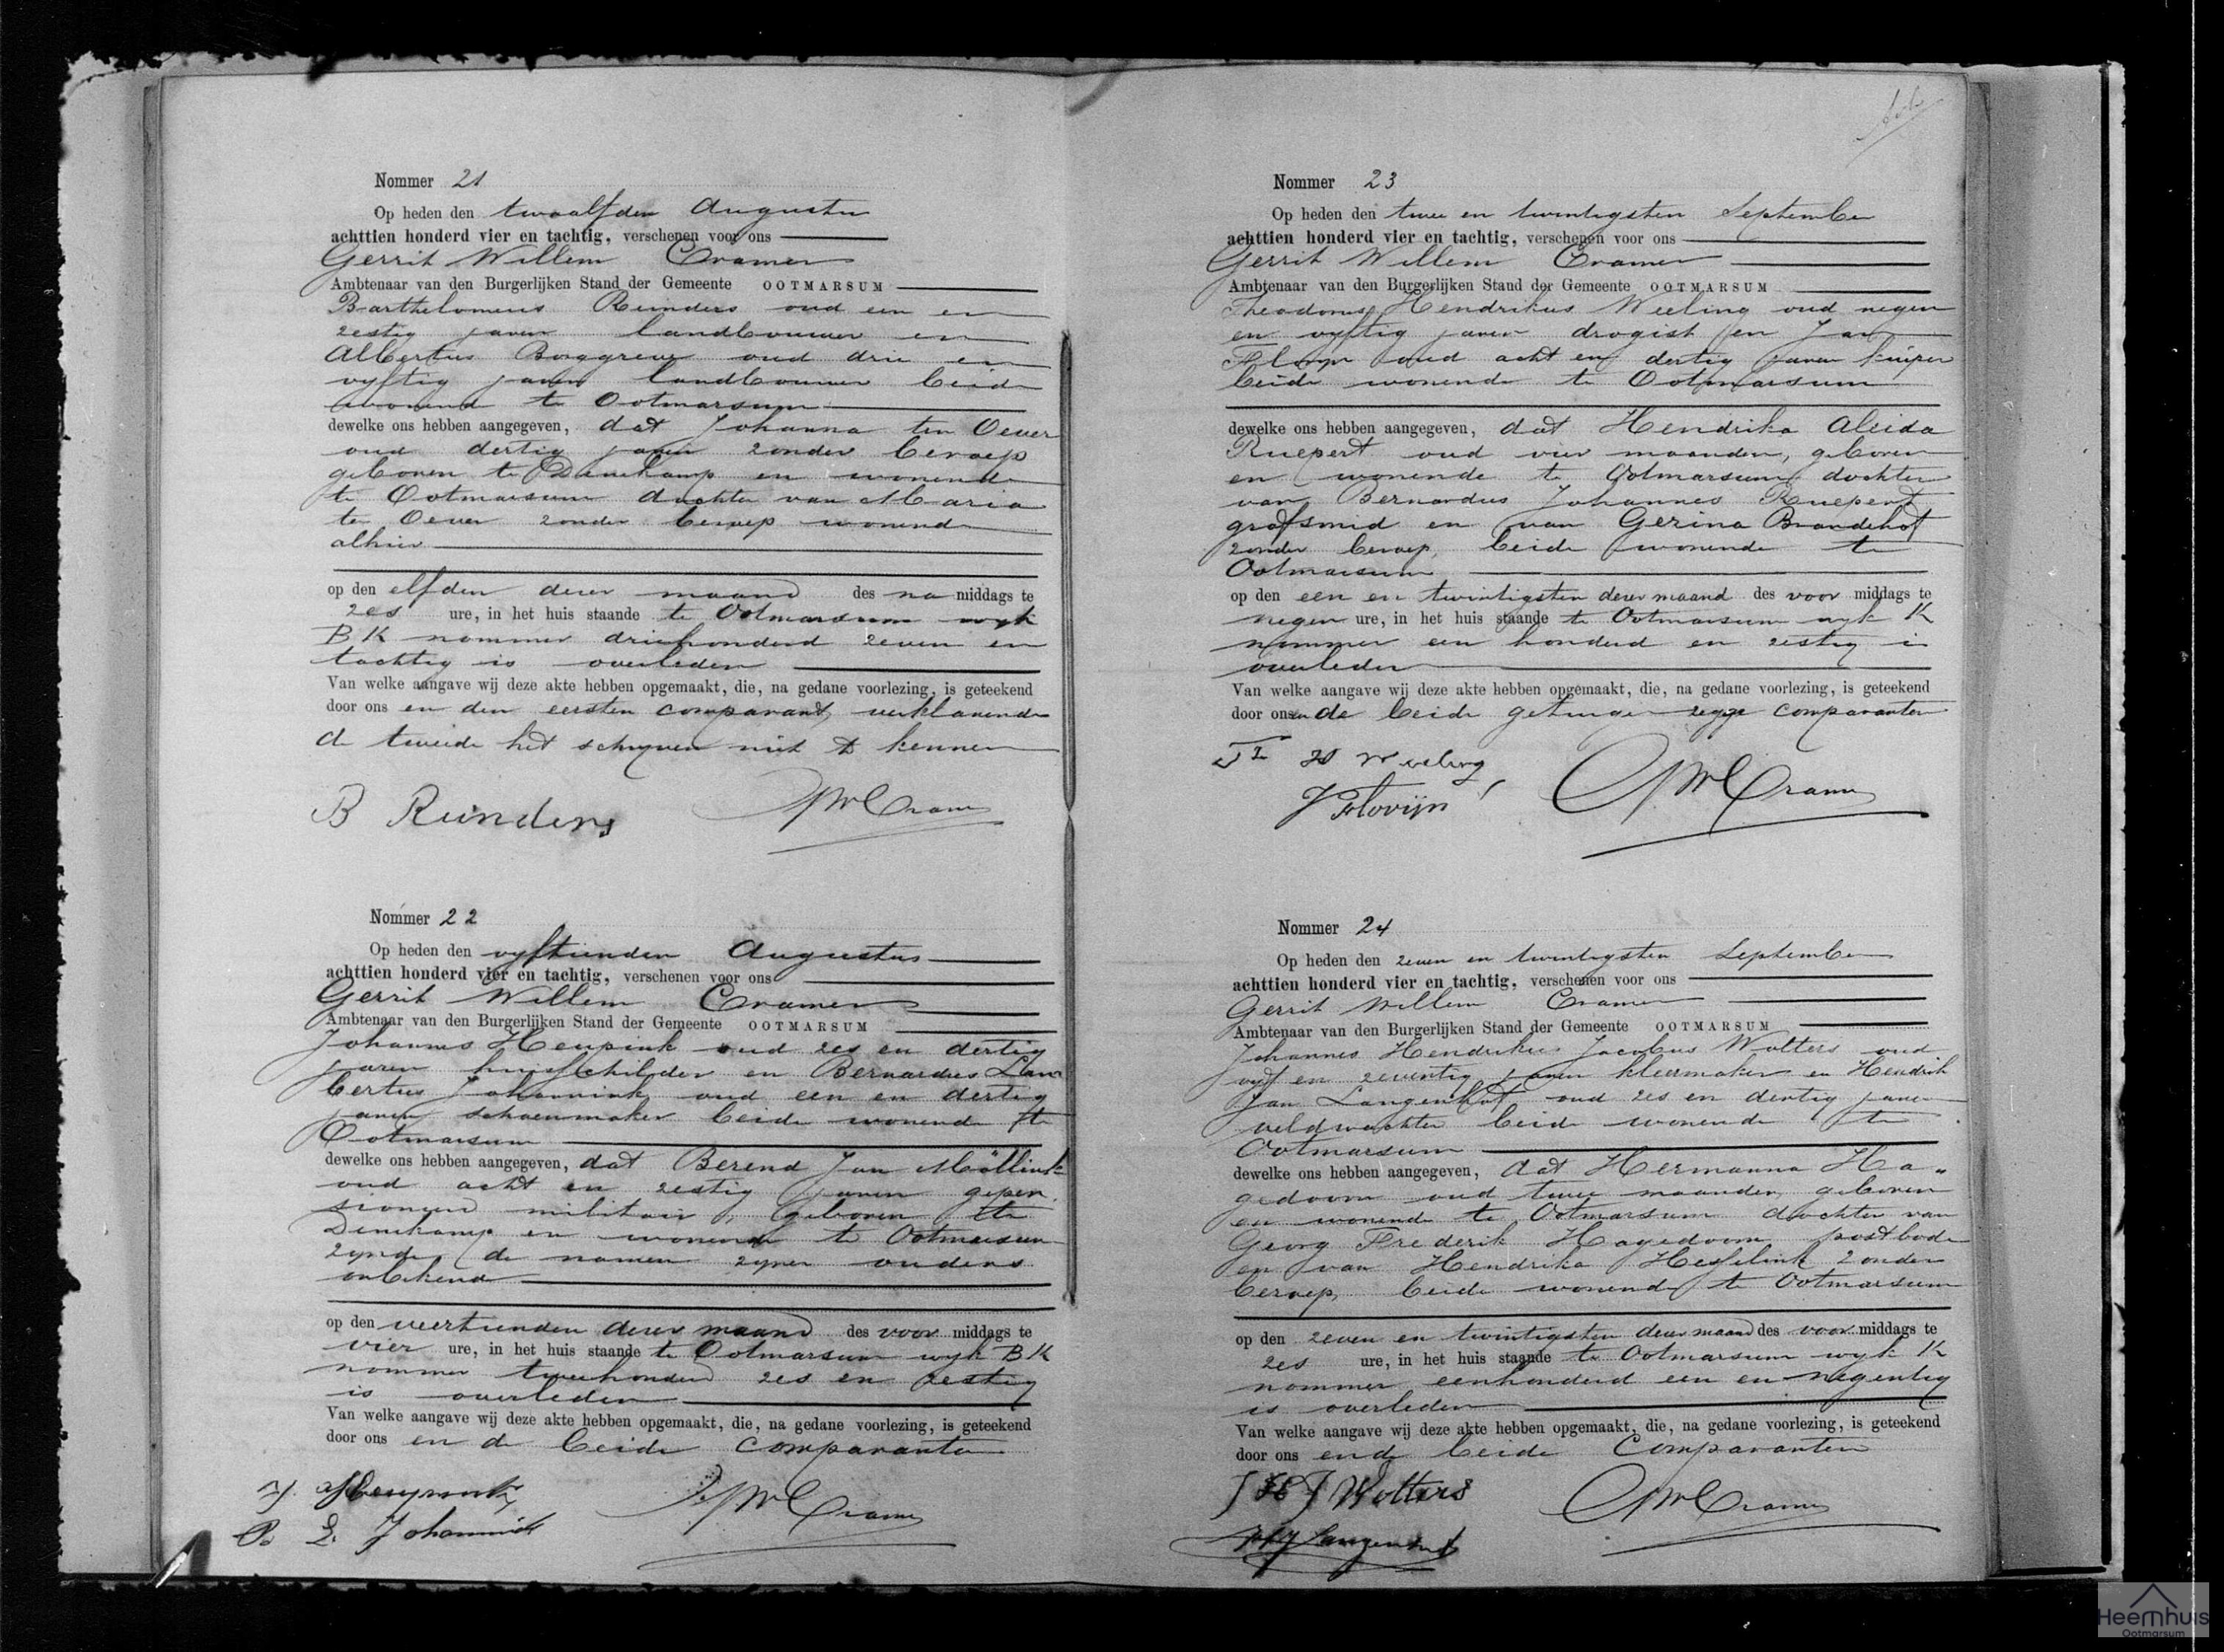 Nommer 21
Op heden den twaalfden Augustus
achttien honderd vier en tachtig, verschenen voor ons
Gerrit Willem Cramer
Ambtenaar van den Burgerlijken Stand der Gemeente OOTMARSUM
Bartholomeus Reinders oud een en
zestig jaren landbouwer en
Albertus Borggreve oud drie en
vyftig jaren landbouwer beide
wonend te Ootmarsum
dewelke ons hebben aangegeven, dat Johanna ten Oever
oud dertig jaren zonder beroep
geboren te Denekamp en wonende
te Ootmarsum dochter van Maria
ten Oever zonder beroep wonende
alhier
op den elfden dezer maand des na middags te
zes ure, in het huis staande te Ootmarsum wyk
BK nommer driehonderd zeven en
tachtig is overleden
Van welke aangave wij deze akte hebben opgemaakt, die, na gedane voorlezing, is geteekend
door ons en den eersten comparant, verklarende
de tweede het schryven niet te kennen
B Reinders GWCramer
Nommer 22
Op heden den vyftienden Augustus
achttien honderd vier en tachtig, verschenen voor ons
Gerrit Willem Cramer
Ambtenaar van den Burgerlijken Stand der Gemeente OOTMARSUM
Johannes Heupink oud zes en dertig
jaren huisschilder en Bernardus Lam
bertus Johannink oud een en dertig
jaren schoenmaker beide wonende te
Ootmarsum
dewelke ons hebben aangegeven, dat Berend Jan Möllink
oud acht en zestig jaren gepen
sioneerd militair, geboren te
Denekamp en wonende te Ootmarsum
zynde de namen zyner ouders
onbekend
op den veertienden dezer maand des voor middags te
vier ure, in het huis staande te Ootmarsum wyk BK
nommer tweehonderd zes en zestig
is overleden
Van welke aangave wij deze akte hebben opgemaakt, die, na gedane voorlezing, is geteekend
door ons en de beide comparanten
J. Heupink GWCramer
B. L. Johannink
Nommer 23
Op heden den twee en twintigsten September
achttien honderd vier en tachtig, verschenen voor ons
Gerrit Willem Cramer
Ambtenaar van den Burgerlijken Stand der Gemeente OOTMARSUM
Theodorus Hendrikus Weeling oud negen
en vyftig jaren drogist en Jan
oud acht en dertig jaren kuiper
beide wonende te Ootmarsum
dewelke ons hebben aangegeven, dat Hendrika Aleida
Ruepert oud vier maanden, geboren
en wonende te Ootmarsum dochter
van Bernardus Johannes Ruepert
grofsmid en van Gerina Brandehof
zonder beroep, beide wonende te
Ootmarsum
op den een en twintigsten dezer maand des voor middags te
negen ure, in het huis staande te Ootmarsum wyk K
nommer een honderd en zestig is
overleden
Van welke aangave wij deze akte hebben opgemaakt, die, na gedane voorlezing, is geteekend
door ons en de beide getuigen zegge comparanten
T H Weeling
GWCramer
Nommer 24
Op heden den zeven en twintigsten September
achttien honderd vier en tachtig, verschenen voor ons
Gerrit Willem Cramer
Ambtenaar van den Burgerlijken Stand der Gemeente OOTMARSUM
Johannes Hendrikus Jacobus Wolters oud
vyf en zeventig jaren kleermaker en Hendrik
Jan Langenhof oud zes en dertig jaren
veldwachter beide wonende te
Ootmarsum
dewelke ons hebben aangegeven, dat Hermanna Ha„
gedoorn oud twee maanden, geboren
en wonende te Ootmarsum dochter van
Georg Frederik Hagedoorn, postbode
en van Hendrika Hesselink zonder
beroep, beide wonende te Ootmarsum
op den zeven en twintigsten dezer maand des voor middags te
zes ure, in het huis staande te Ootmarsum wyk K
nommer eenhonderd een en negentig
is overleden
Van welke aangave wij deze akte hebben opgemaakt, die, na gedane voorlezing, is geteekend
door ons en de beide Comparanten
J H J Wolters GWCramer
HJ Langenhof
Heemhuis
Ootmarsum